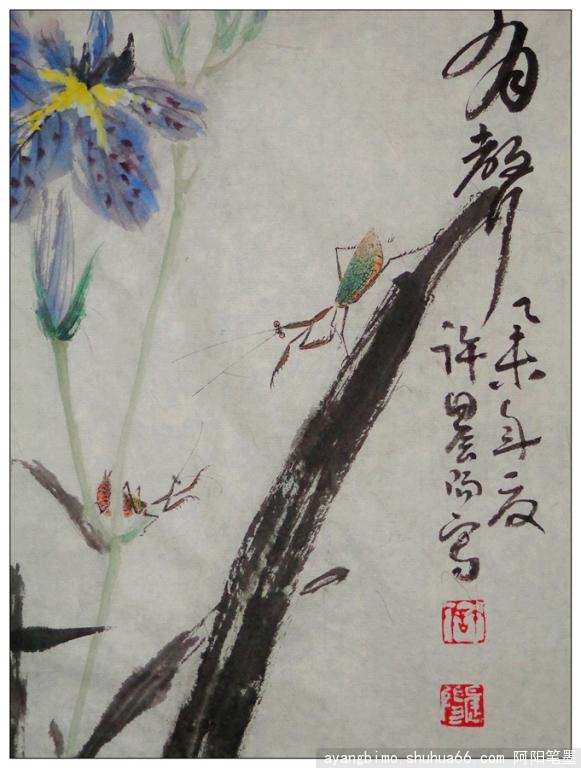 有聲
乙未年夏
許晨阳寫
ayangbimo.shuhua66.com 阿阳笔墨